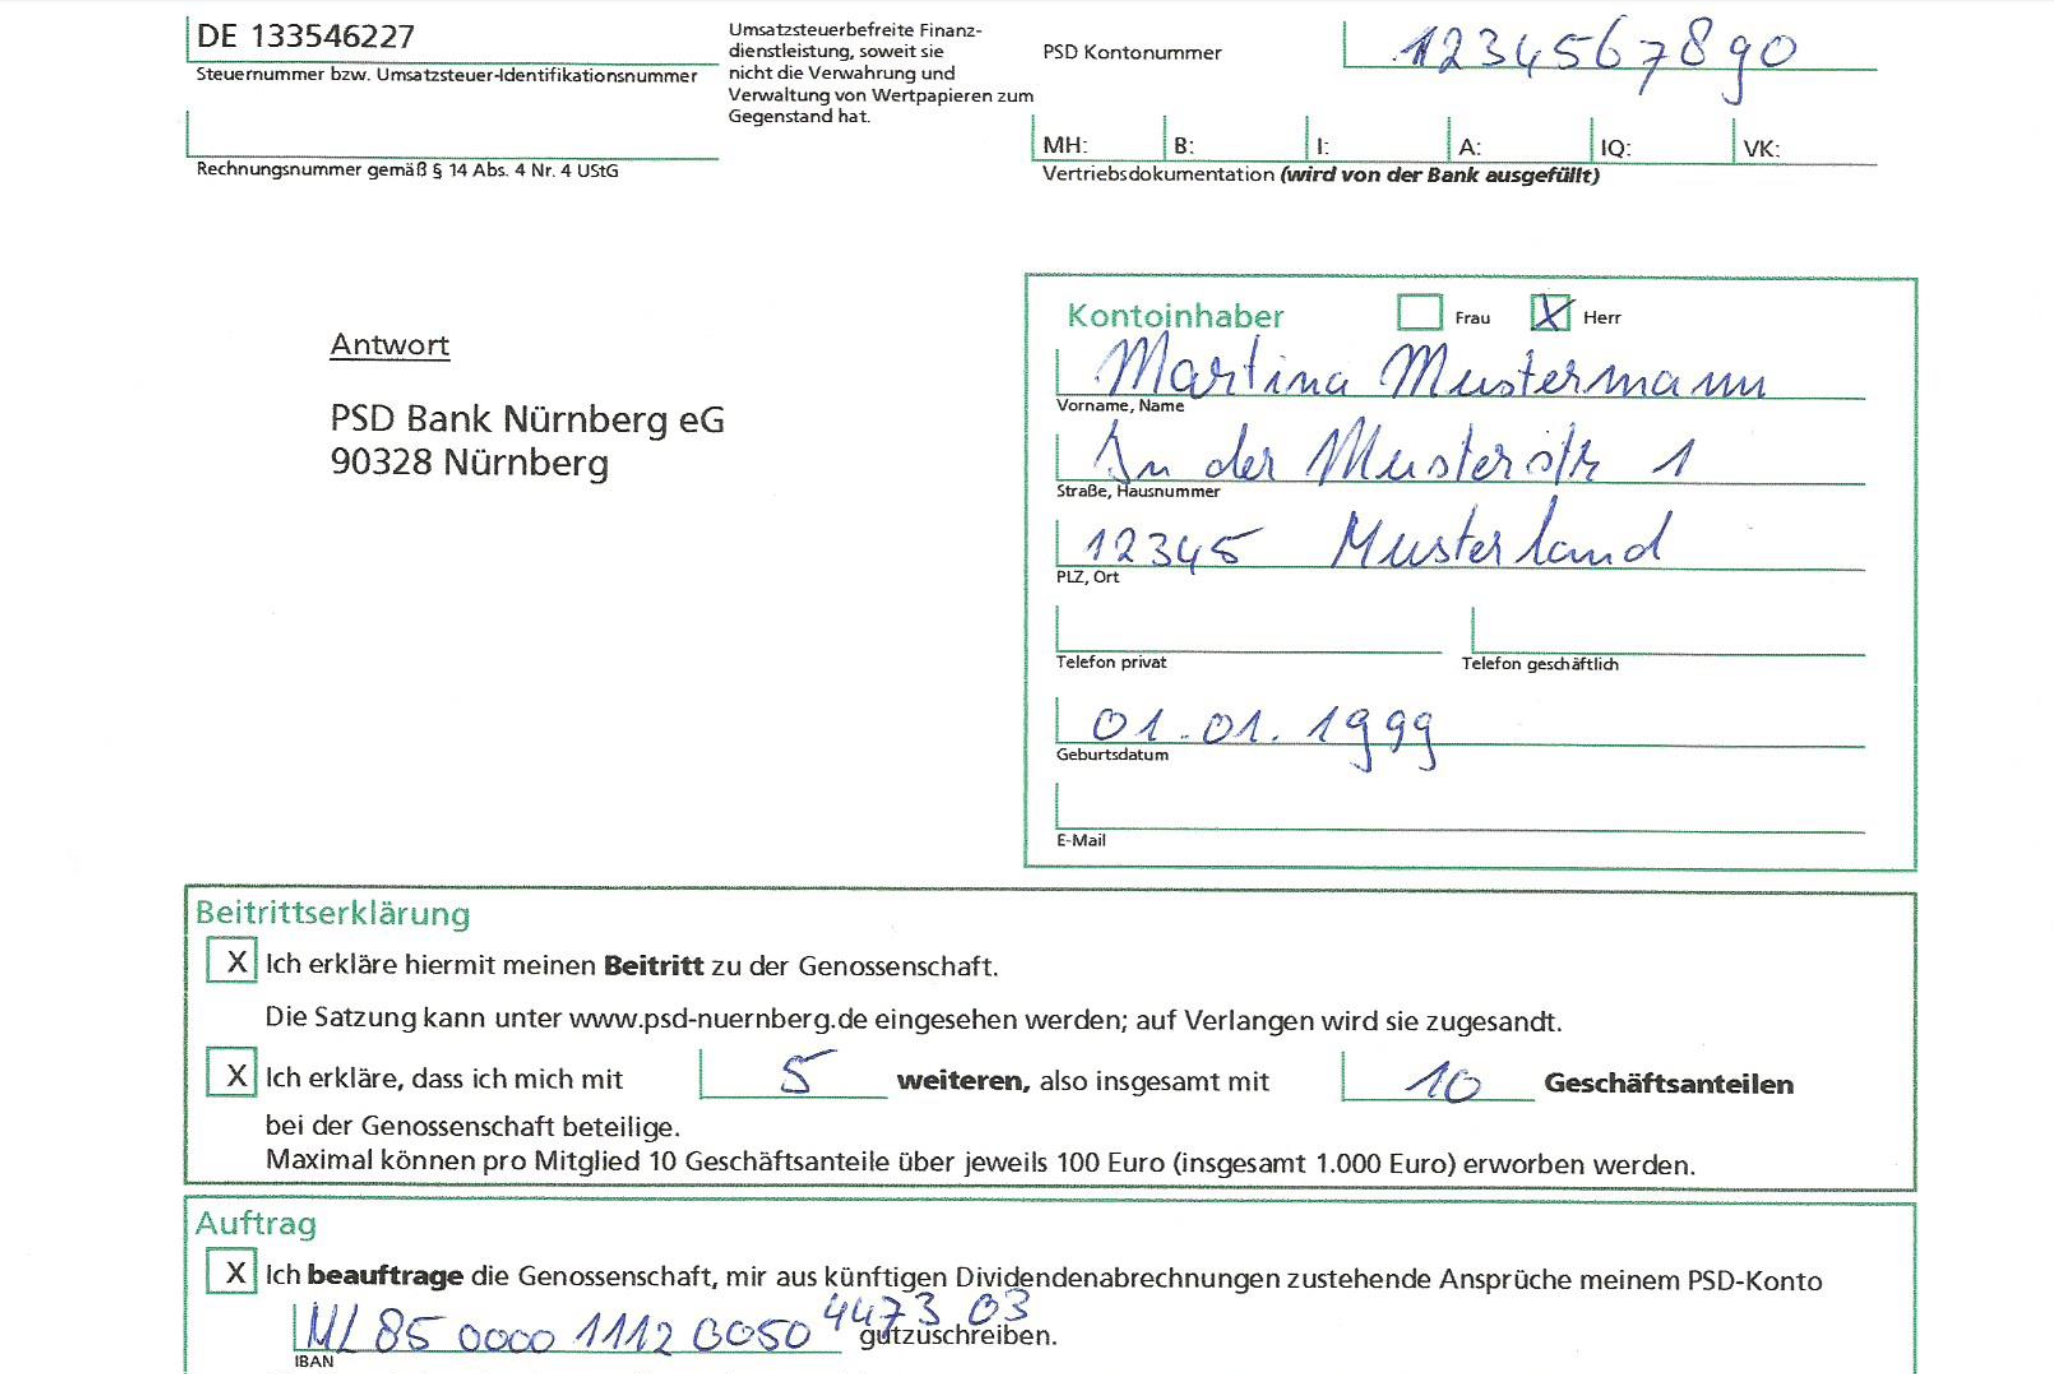 DE 133546227
Steuernummer bzw. Umsatzsteuer-Identifikationsnummer
Rechnungsnummer gemäß § 14 Abs. 4 Nr. 4 UStG
Umsatzsteuerbefreite Finanz-
dienstleistung, soweit sie
nicht die Verwahrung und
Verwaltung von Wertpapieren zum
Gegenstand hat.
PSD Kontonummer 1234567890
MH: B: I: A: IQ: VK:
Vertriebsdokumentation (wird von der Bank ausgefüllt)
Antwort
PSD Bank Nürnberg eG
90328 Nürnberg
Kontoinhaber Frau X Herr
Martina Mustermann
Vorname, Name
In der Musterstr 1
Straße, Hausnummer
12345 Musterland
PLZ, Ort
Telefon privat Telefon geschäftlich
01.01.1999
Geburtsdatum
E-Mail
Beitrittserklärung
X Ich erkläre hiermit meinen Beitritt zu der Genossenschaft.
Die Satzung kann unter www.psd-nuernberg.de eingesehen werden; auf Verlangen wird sie zugesandt.
X Ich erkläre, dass ich mich mit 5 weiteren, also insgesamt mit 10 Geschäftsanteilen
bei der Genossenschaft beteilige.
Maximal können pro Mitglied 10 Geschäftsanteile über jeweils 100 Euro (insgesamt 1.000 Euro) erworben werden.
Auftrag
X Ich beauftrage die Genossenschaft, mir aus künftigen Dividendenabrechnungen zustehende Ansprüche meinem PSD-Konto
ML 85 0000 1112 0050 4473 03 gutzuschreiben.
IBAN